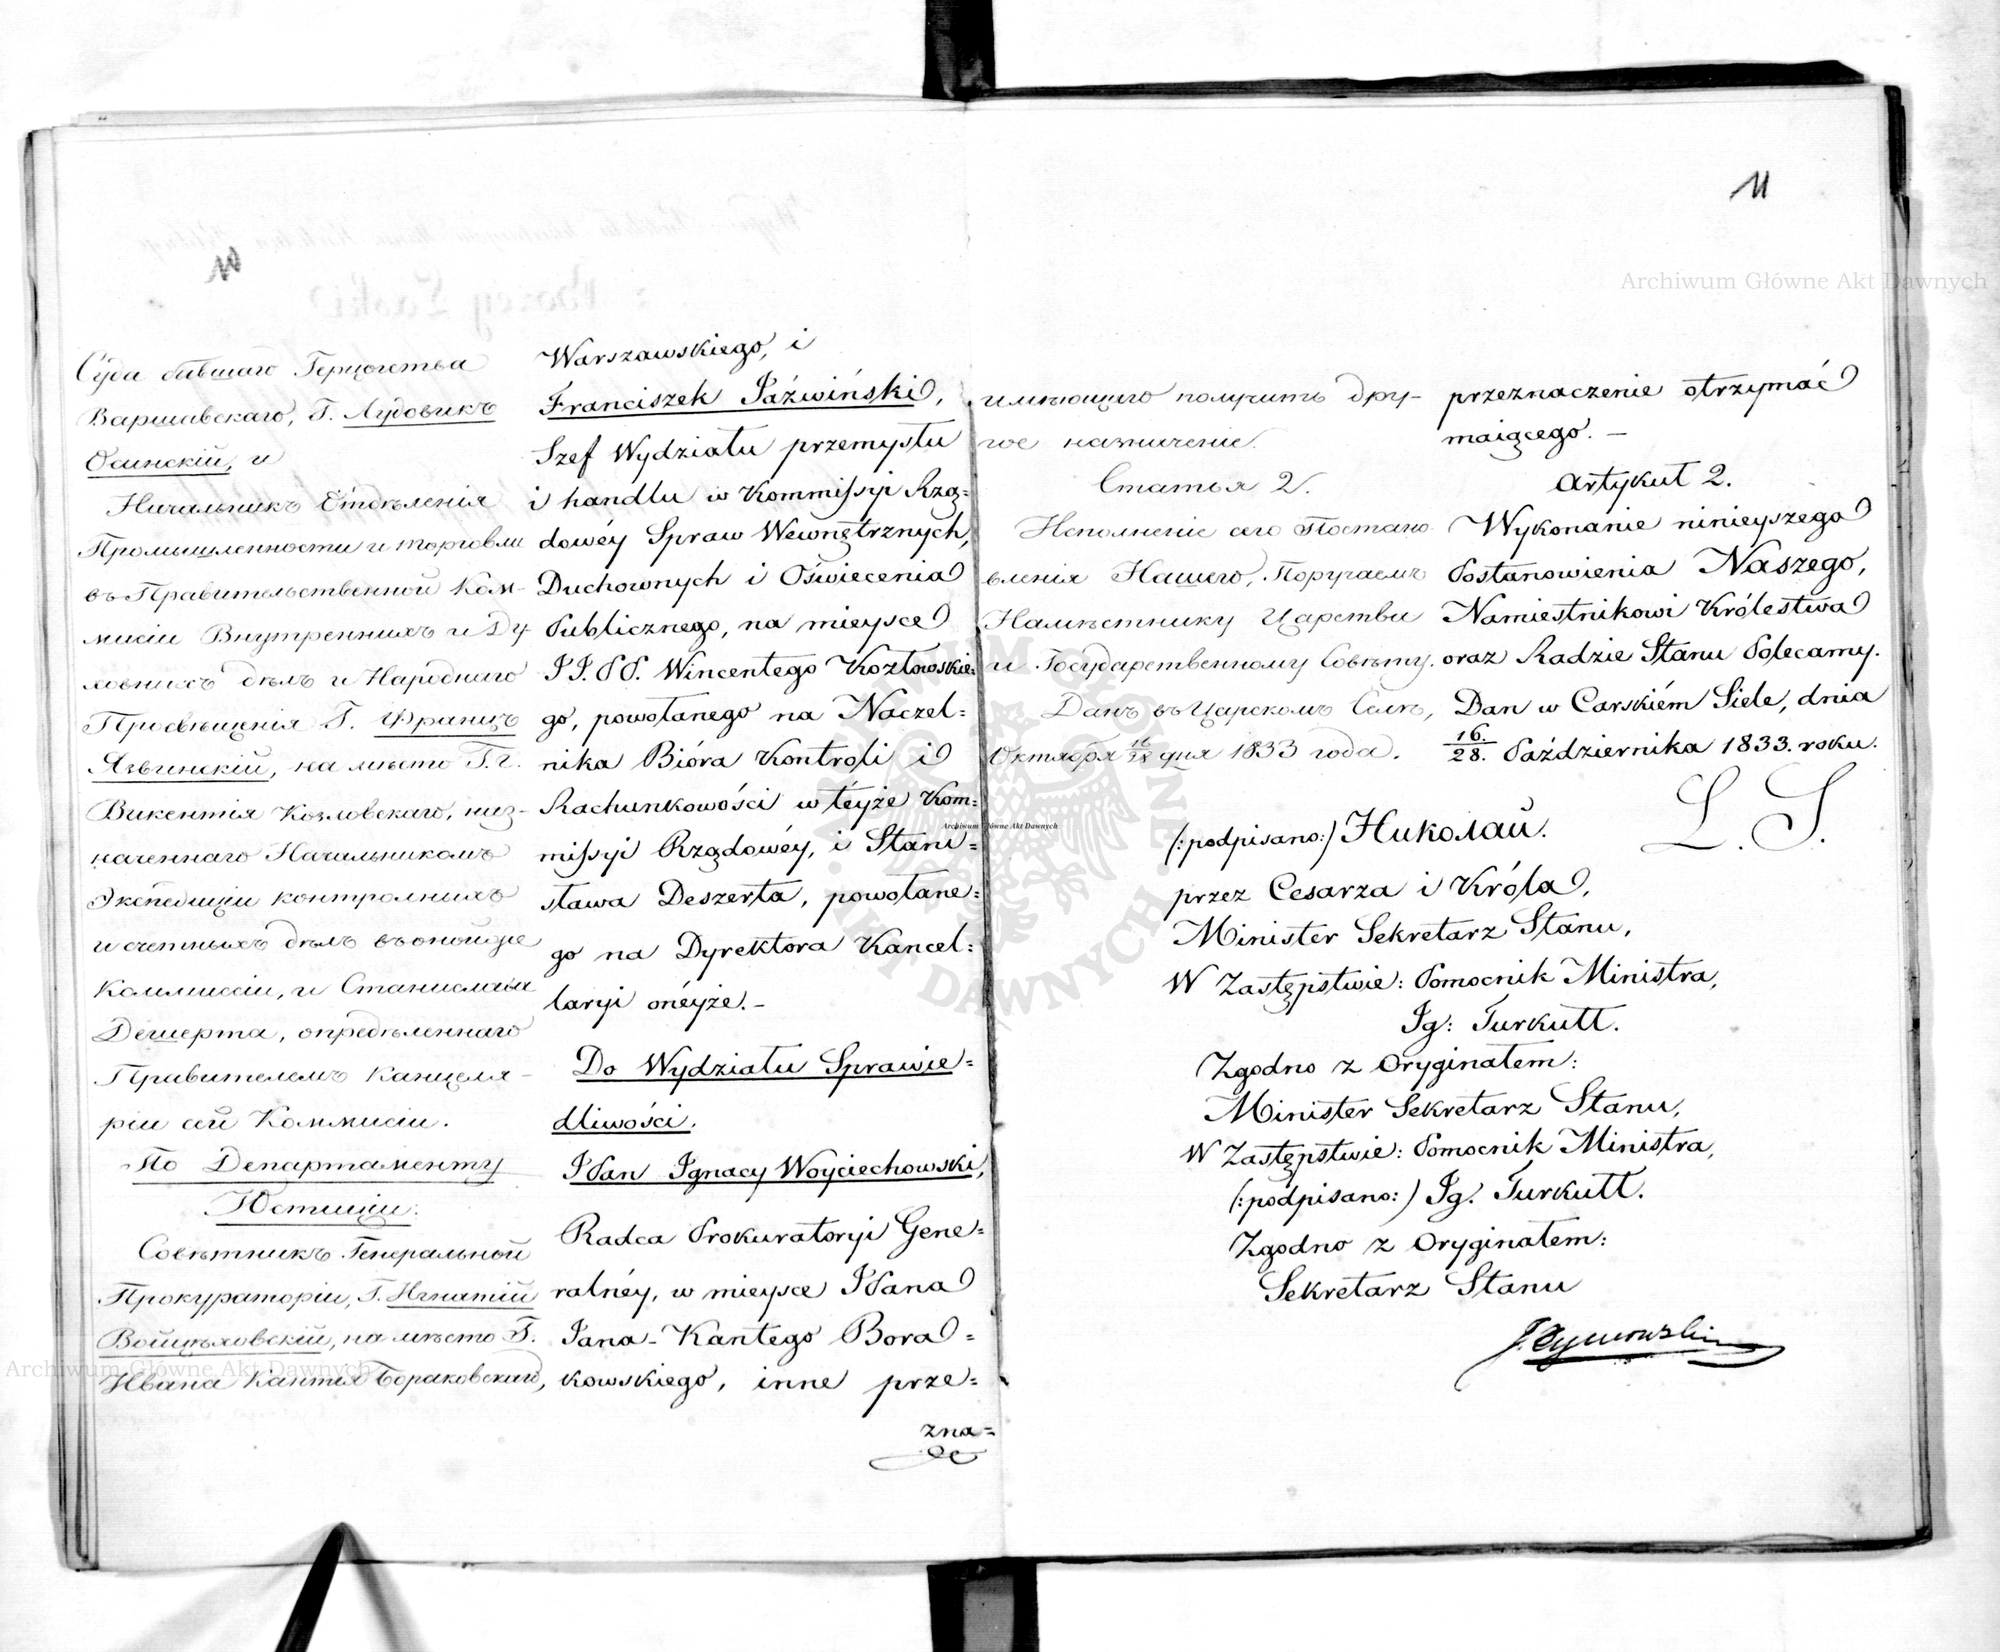 10
Суда бывшаго Герцогства
Варшавскаго, Г. Лудовикъ
Осинскій, и
Начальникъ Отдѣленія
Промышленности и торговли
въ Правительственной Ком-
мисіи Внутреннихъ и Ду
ховныхъ дѣлъ и Народнаго
Просвѣщенія Г. Францъ
Язвинскій, на мѣсто Г.г.
Викентія Козловскаго, наз-
наченнаго Начальникомъ
Экспедиціи контрольныхъ
и счетныхъ дѣлъ въ оной же
Коммиссіи, и Станислава
Дешерта, опредѣленнаго
Правителемъ Канцеля-
ріи сей Коммисіи.
По Департаменту
Юстиціи.
Совѣтникъ Генеральной
Прокураторіи, Г. Игнатій
Войцѣховскій, на мѣсто Г.
Ивана Кантія Бораковскаго,
Warszawskiego, i
Franciszek Jaźwiński,
Szef Wydziału przemysłu
i handlu w Kommissyi Rzą=
dowéy Spraw Wewnętrznych,
Duchownych i Oświecenia
Publicznego, na mieysce
JJ. PP. Wincentego Kozłowskie=
go, powołanego na Naczel=
nika Bióra Kontroli i
Rachunkowości w téyże Kom=
missyi Rządowéy, i Stani=
sława Deszerta, powołane=
go na Dyrektora Kancel=
laryi onéyże.-
Do Wydziału Sprawie=
dliwości.
JPan Ignacy Woyciechowski,
Radca Prokuratoryi Gene=
ralnéy, w mieysce JPana
Jana-Kantego Bora=
kowskiego, inne prze=
zna=
11
имѣющаго получить дру-
гое назначеніе.
Статья 2.
Исполненіе сего Постано
вленія Нашего, Поручаемъ
Намѣстнику Царства
и Государственному Совѣту.
Данъ въ Царскомъ Селѣ,
Октября 16/28 дня 1833 года.
przeznaczenie otrzymać
maiącego. -
Artykuł 2.
Wykonanie ninieyszego
Postanowienia Naszego,
Namiestnikowi Królestwa
oraz Radzie Stanu Polecamy.
Dan w Carskiém Siele, dnia
16./28. Października 1833. roku.
L. S.
(:podpisano:) Николай.
przez Cesarza i Króla,
Minister Sekretarz Stanu,
W Zastępstwie: Pomocnik Ministra,
Ig: Turkułł.
Zgodno z Oryginałem:
Minister Sekretarz Stanu,
W Zastępstwie: Pomocnik Ministra,
(:podpisano:) Ig. Turkułł.
Zgodno z Oryginałem:
Sekretarz Stanu
Archiwum Główne Akt Dawnych
Archiwum Główne Akt Dawnych
Archiwum Główne Akt Dawnych
ARCHIWUM GŁÓWNE AKT DAWNYCH